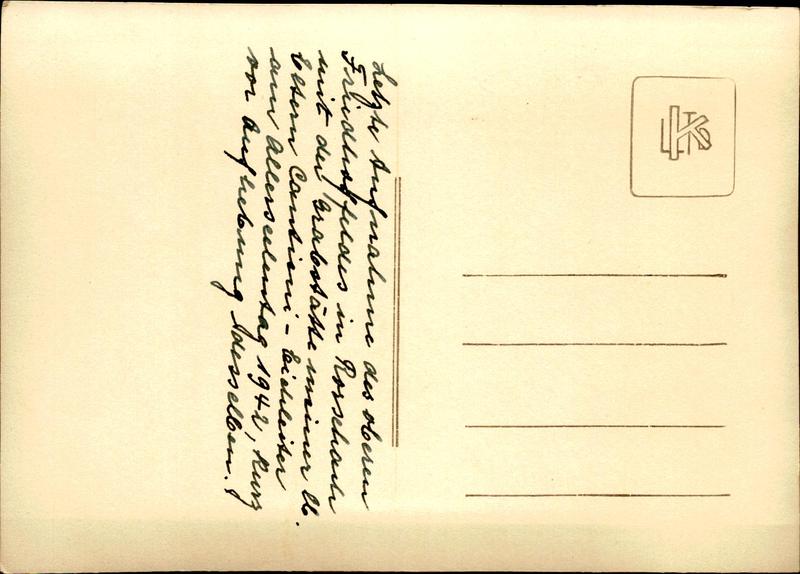 Letzte Aufnahme des oberen
Friedhoffeldes in Rorschach
mit der Grabstätte meiner lb.
Eltern Cantieni - Eichleiter
am Allerseelentag 1942, kurz
vor Aufhebung desselben.